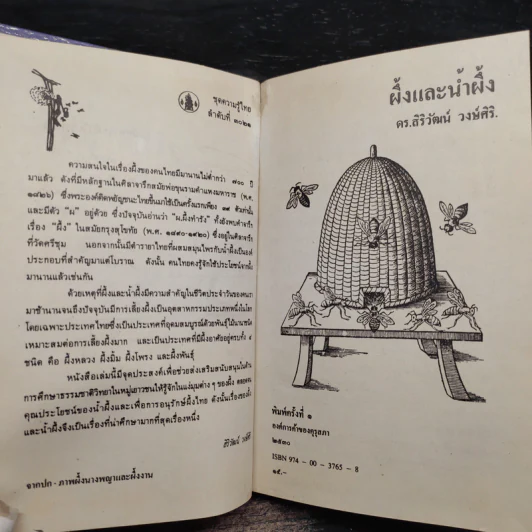 ชุดความรู้ไทย
ลำดับที่ ๓๐๒๑
ความสนใจในเรื่องผึ้งของคนไทยมีมานานไม่ต่ำกว่า ๗๐๐ ปี
มาแล้ว ดังที่มีหลักฐานในศิลาจารึกสมัยพ่อขุนรามคำแหงมหาราช (พ.ศ.
๑๘๒๖) ซึ่งพระองค์คิดพยัญชนะไทยขึ้นมาใช้เป็นครั้งแรกเพียง
และมีตัว "ผ" อยู่ด้วย ซึ่งปัจจุบันอ่านว่า "ผ.ผึ้งทำรัง" ทั้งยังพบคำจารึก
เรื่อง "ผึ้ง" ในสมัยกรุงสุโขทัย (พ.ศ. ๑๘๙๐-๑๙๒๐) ซึ่งอยู่ในศิลาจารึก
ที่วัดศรีชุม นอกจากนั้นมีตำรายาไทยที่ผสมสมุนไพรกับน้ำผึ้งเป็นองค์
ประกอบที่สำคัญมาแต่โบราณ ดังนั้น คนไทยคงรู้จักใช้ประโยชน์จากผึ้ง
มานานแล้วเช่นกัน
ด้วยเหตุที่ผึ้งและน้ำผึ้งมีความสำคัญในชีวิตประจำวันของคนเรา
มาช้านานจนถึงปัจจุบันมีการเลี้ยงผึ้งเป็นอุตสาหกรรมประเภทหนึ่งในโลก
โดยเฉพาะประเทศไทยซึ่งเป็นประเทศที่อุดมสมบูรณ์ด้วยพันธุ์ไม้นานาชนิด
เหมาะสมต่อการเลี้ยงผึ้งมาก และเป็นประเทศที่มีผึ้งอาศัยอยู่ครบทั้ง ๔
ชนิด คือ ผึ้งหลวง ผึ้งมิ้ม ผึ้งโพรง และผึ้งพันธุ์
หนังสือเล่มนี้มีจุดประสงค์เพื่อช่วยส่งเสริมสนับสนุนในด้าน
การศึกษาธรรมชาติวิทยาในหมู่เยาวชนให้รู้จักในแง่มุมต่าง ๆ ของผึ้ง ตลอดจน
คุณประโยชน์ของน้ำผึ้งและเพื่อการอนุรักษ์ผึ้งไทย ดังนั้นเรื่องของผึ้ง
และน้ำผึ้งจึงเป็นเรื่องที่น่าศึกษามากที่สุดเรื่องหนึ่ง
สิริวัฒน์ วงษ์ศิริ
จากปก - ภาพผึ้งนางพญาและผึ้งงาน
ผึ้งและน้ำผึ้ง
ดร.สิริวัฒน์ วงษ์ศิริ.
พิมพ์ครั้งที่ ๑
องค์การค้าของคุรุสภา
๒๕๓๐
ISBN 974 - 00 - 3765 - 8
๑๕.-